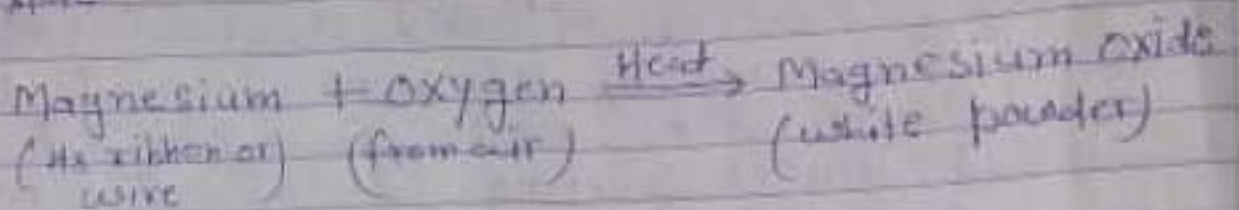 Magnesium + Oxygen Heat → Magnesium Oxide
(Its ribbon or wire) (from air) (white powder)